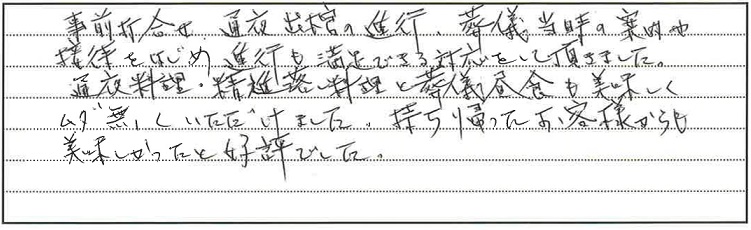 事前打合せ、通夜出棺の進行、葬儀当時の案内や
接待をはじめ進行も満足できる対応をして頂きました。
通夜料理・精進落し料理と葬儀昼食も美味しく
ムダ無くいただけました。持ち帰ったお客様からも
美味しかったと好評でした。